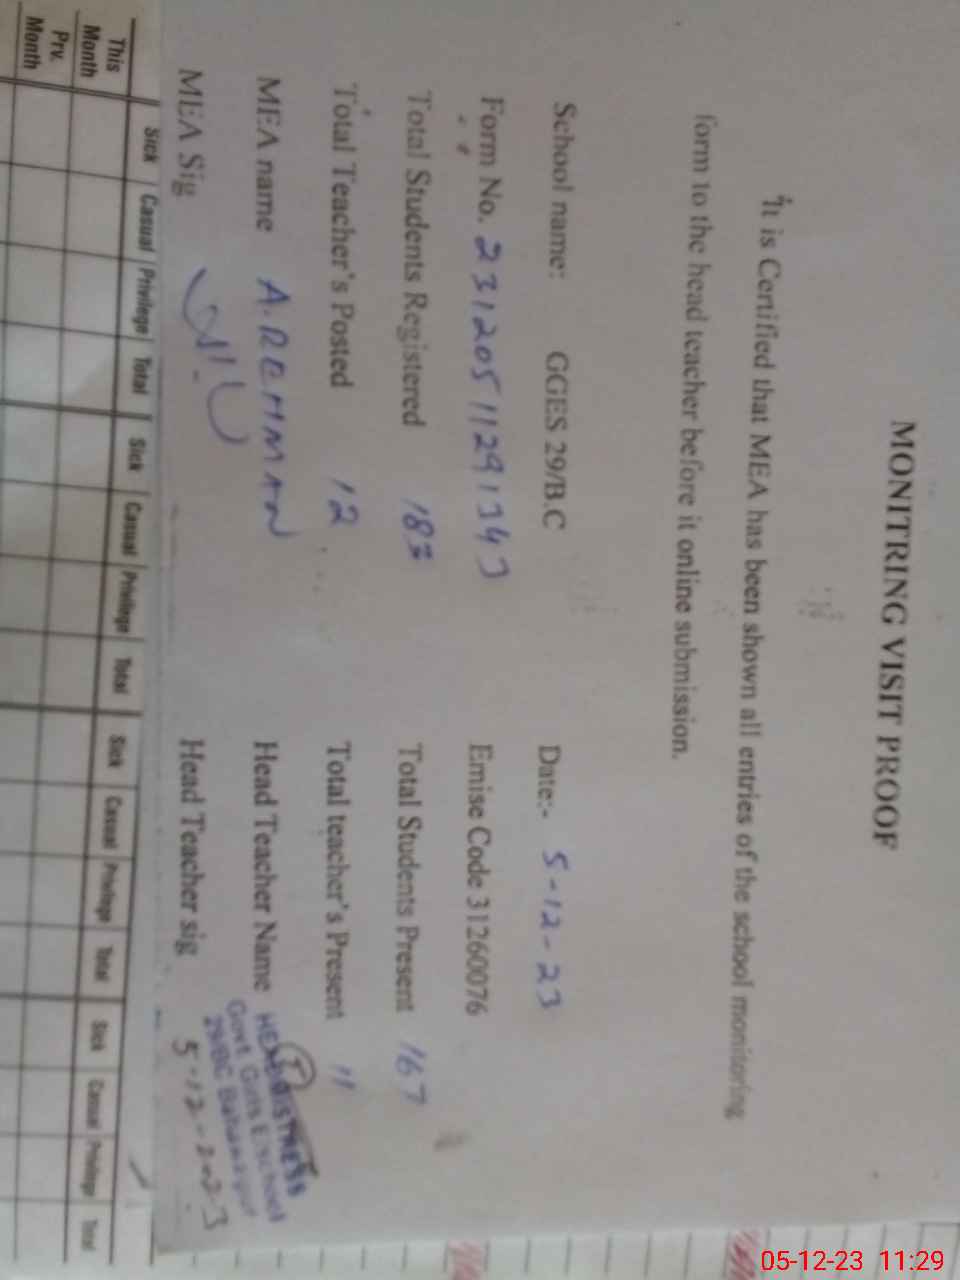 MONITRING VISIT PROOF
It is Certified that MEA has been shown all entries of the school monitoring
form to the head teacher before it online submission.
School name: GGES 29/B.C Date:- 5-12-23
Form No. 2312051129143 Emise Code 31260076
Total Students Registered 183 Total Students Present 167
Total Teacher's Posted 12 Total teacher's Present 11
MEA name A.REHMAN Head Teacher Name
MEA Sig Head Teacher sig
HEADMISTRESS
Govt. Girls E/School
29/BC Bahawalpur
5-12-2023
Sick Casual Privilege Total Sick Casual Privilege Total Sick Casual Privilege Total Sick Casual Privilege Total
This Month
Prv. Month
05-12-23 11:29